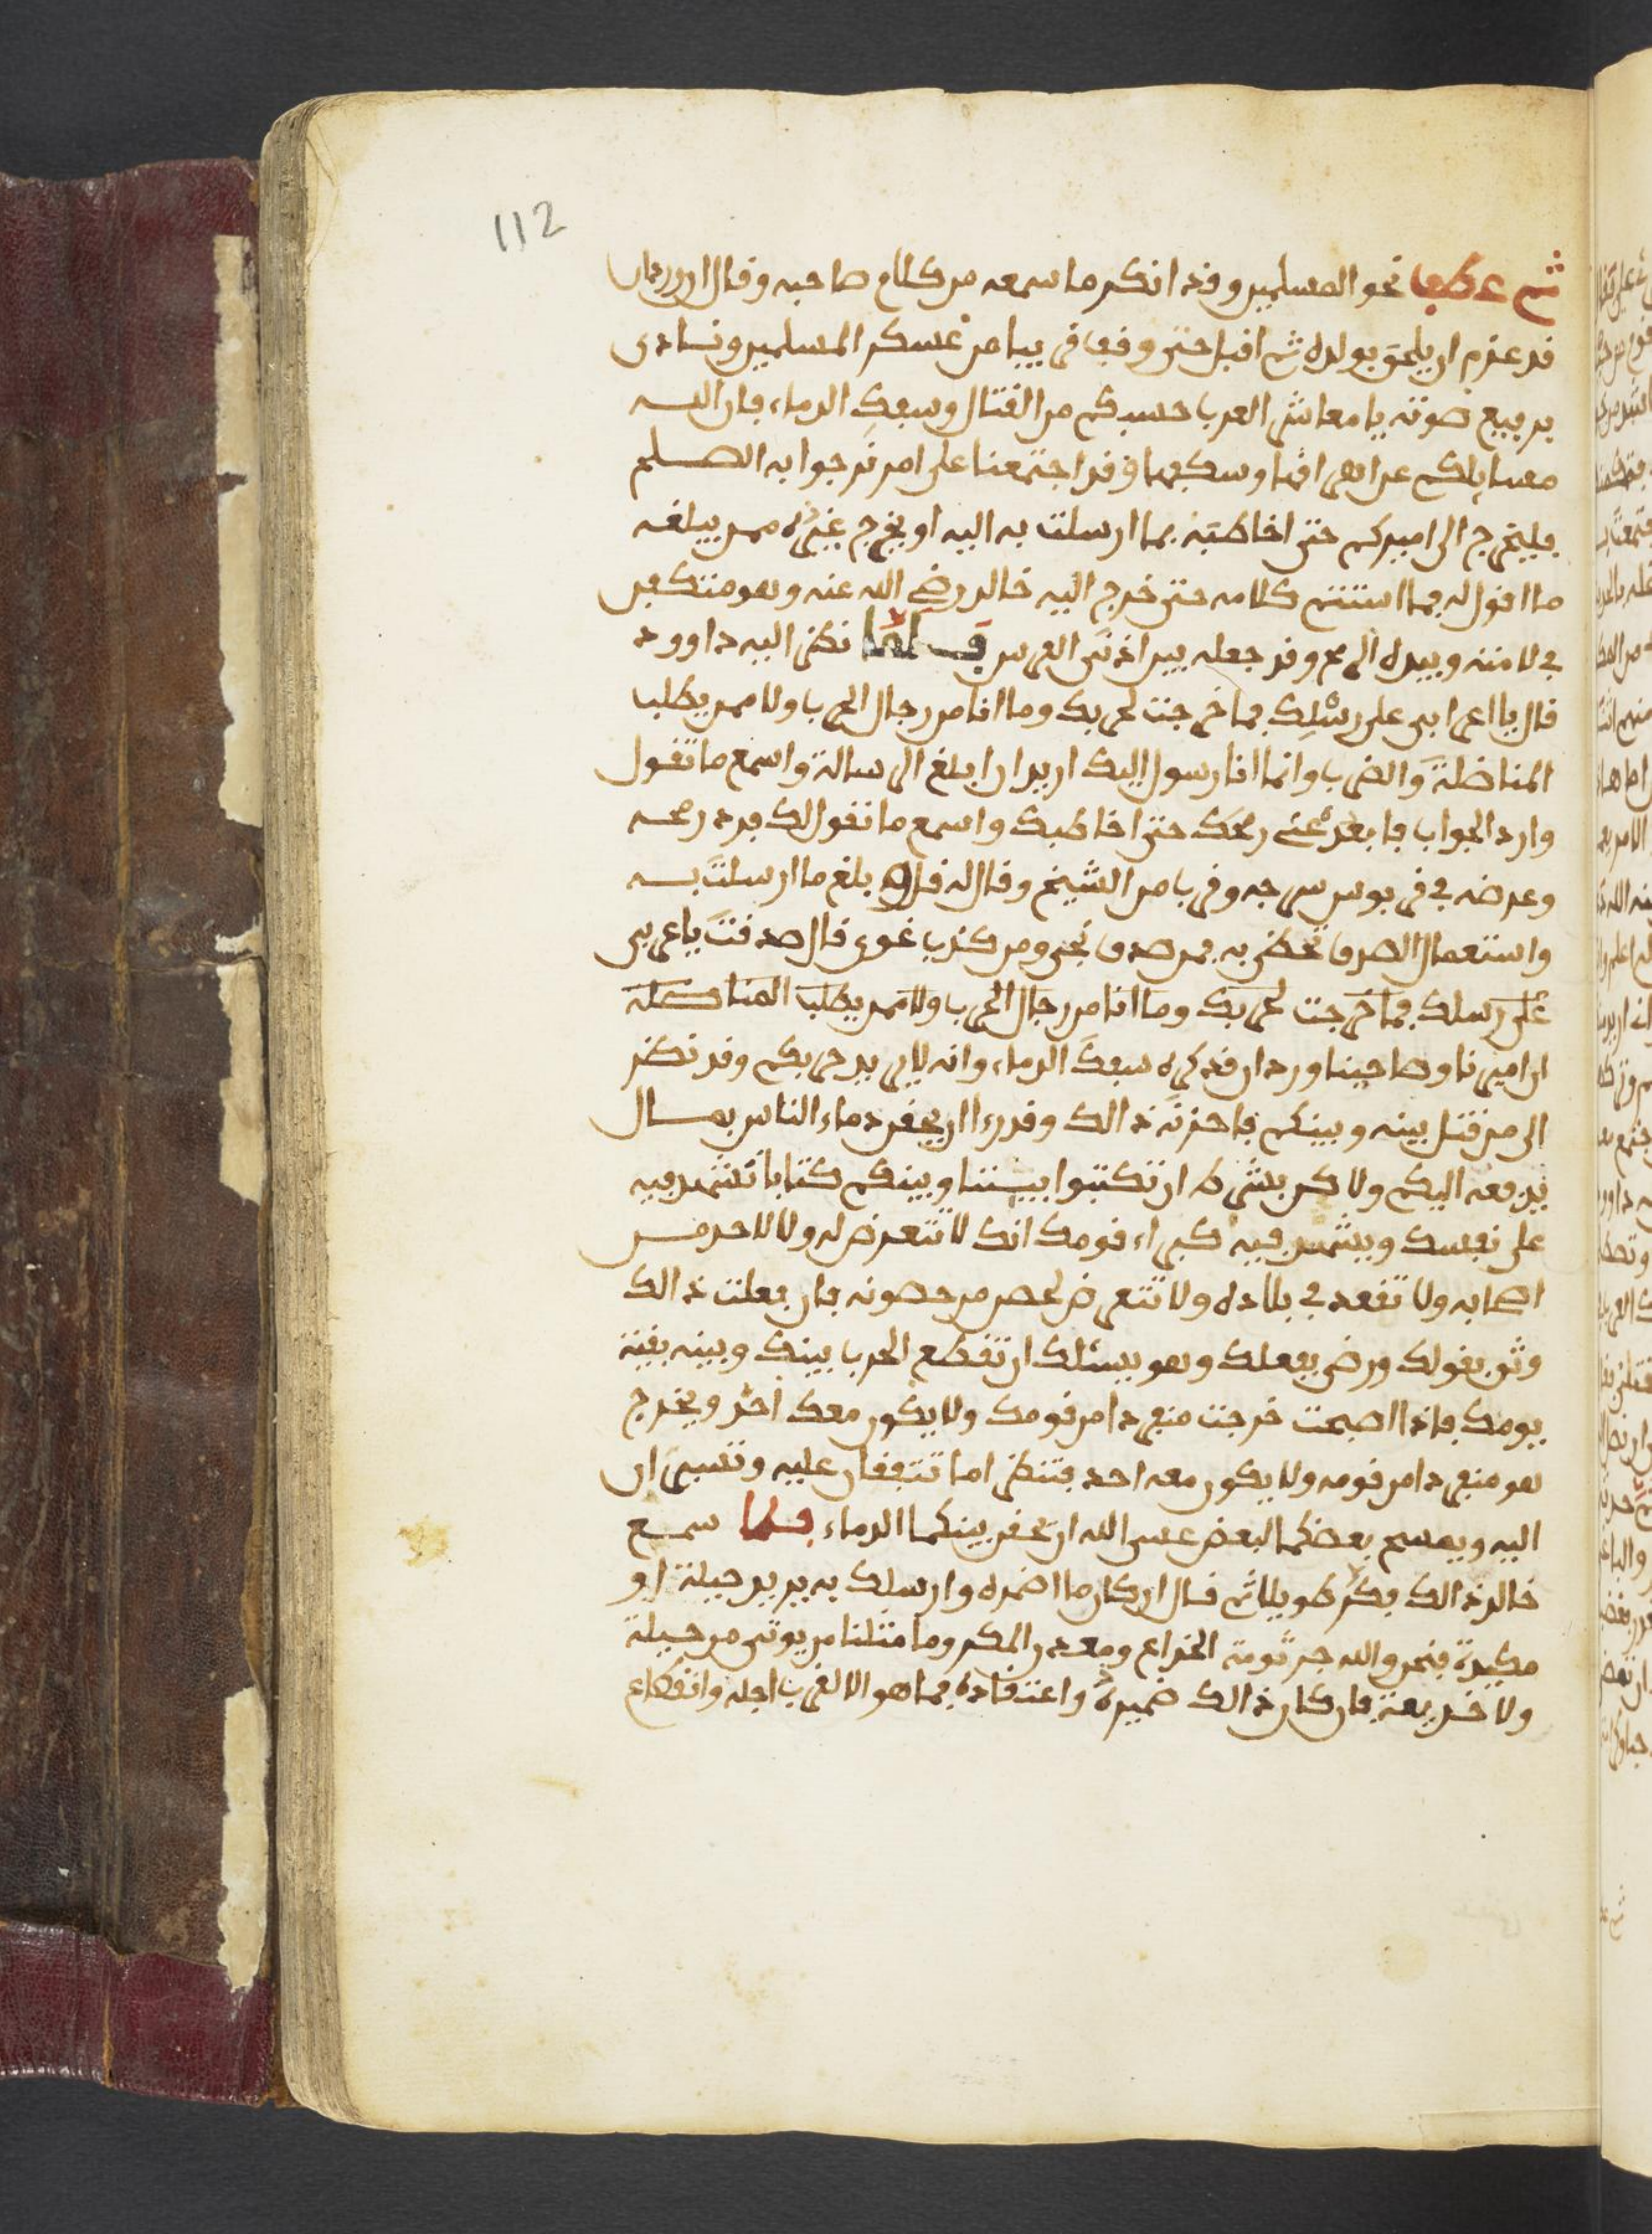 112
ثم عطف نحو المسلمين وقد انكر ما سمعه من كلام صاحبه وقال ان وردان
قد عزم ان يلحق بولده ثم اقبل حتى وقف قريبا من عسكر المسلمين ونادى
برفيع صوته يا معاشر العرب حسبكم من القتال وسفك الدماء فان الله
مسايلكم عن اهراقها وسفكها وقد اجتمعنا على امر نرجوا به الصلح
فليخرج الى اميركم حتى اخاطبه بما ارسلت به اليه او يخرج غيره ممن يبلغه
ما اقول له فما استتم كلامه حتى خرج اليه خالد رضي الله عنه وهو منتكب
في لامته وبيده الرمح وقد جعله بين اذني الفرس فلما نظر اليه داوود
قال يا اعرابي على رسلك فما خرجت لحربك وما انا من رجال الحرب ولا ممن يطلب
المناضلة والضرب وانما انا رسول اليك اريد ان ابلغ الرسالة واسمع ما تقول
وارد الجواب فابعد عني رمحك حتى اخاطبك واسمع ما تقول لك فرد رمحه
وعرضه في قربوس سرجه وقرب من الشيخ وقال له قل بلغ ما ارسلت به
واستعمال الصدق تحظى به فمن صدق نجى ومن كذب غوى قال صدقت يا عربي
على رسلك فما خرجت لحربك وما انا من رجال الحرب ولا ممن يطلب المناضلة
ان اميرنا وصاحبنا وردان قد كره سفك الدماء وانه لا يريد حربكم وقد نظر
الى من قتل بينه وبينكم فاحزنه ذالك وقد رءا ان يحقن دماء الناس بمال
يدفعه اليكم ولاكن بشرط ان تكتبوا بيننا وبينكم كتابا تشهد فيه
على نفسك ويشهد فيه كبراء قومك انك لا تتعرض له ولا لاحد من
اصحابه ولا تقعد في بلاده ولا تتعرض لحصن من حصونه فان فعلت ذالك
وثق بقولك ورضي بفعلك وهو يسئلك ان تقطع الحرب بينك وبينه بقية
يومك فاذا اصبحت خرجت منفردا من قومك ولا يكون معك احد ويخرج
هو منفردا من قومه ولا يكون معه احد فتنظر اما تتفقان عليه وتسيران
اليه ويمسح بعضكما البعض عسى الله ان يحقن بينكما الدماء فلما سمع
خالد ذالك فكر طويلا ثم قال ان كان ما اضمره وارسلك به يريد حيلة او
مكيدة فنحن والله جرثومة الخداع ومعدن المكر وما مثلنا من يوتى من حيلة
ولا خديعة فان كان ذالك ضميره واعتقاده فما هو الا لقرب اجله وانقطاع